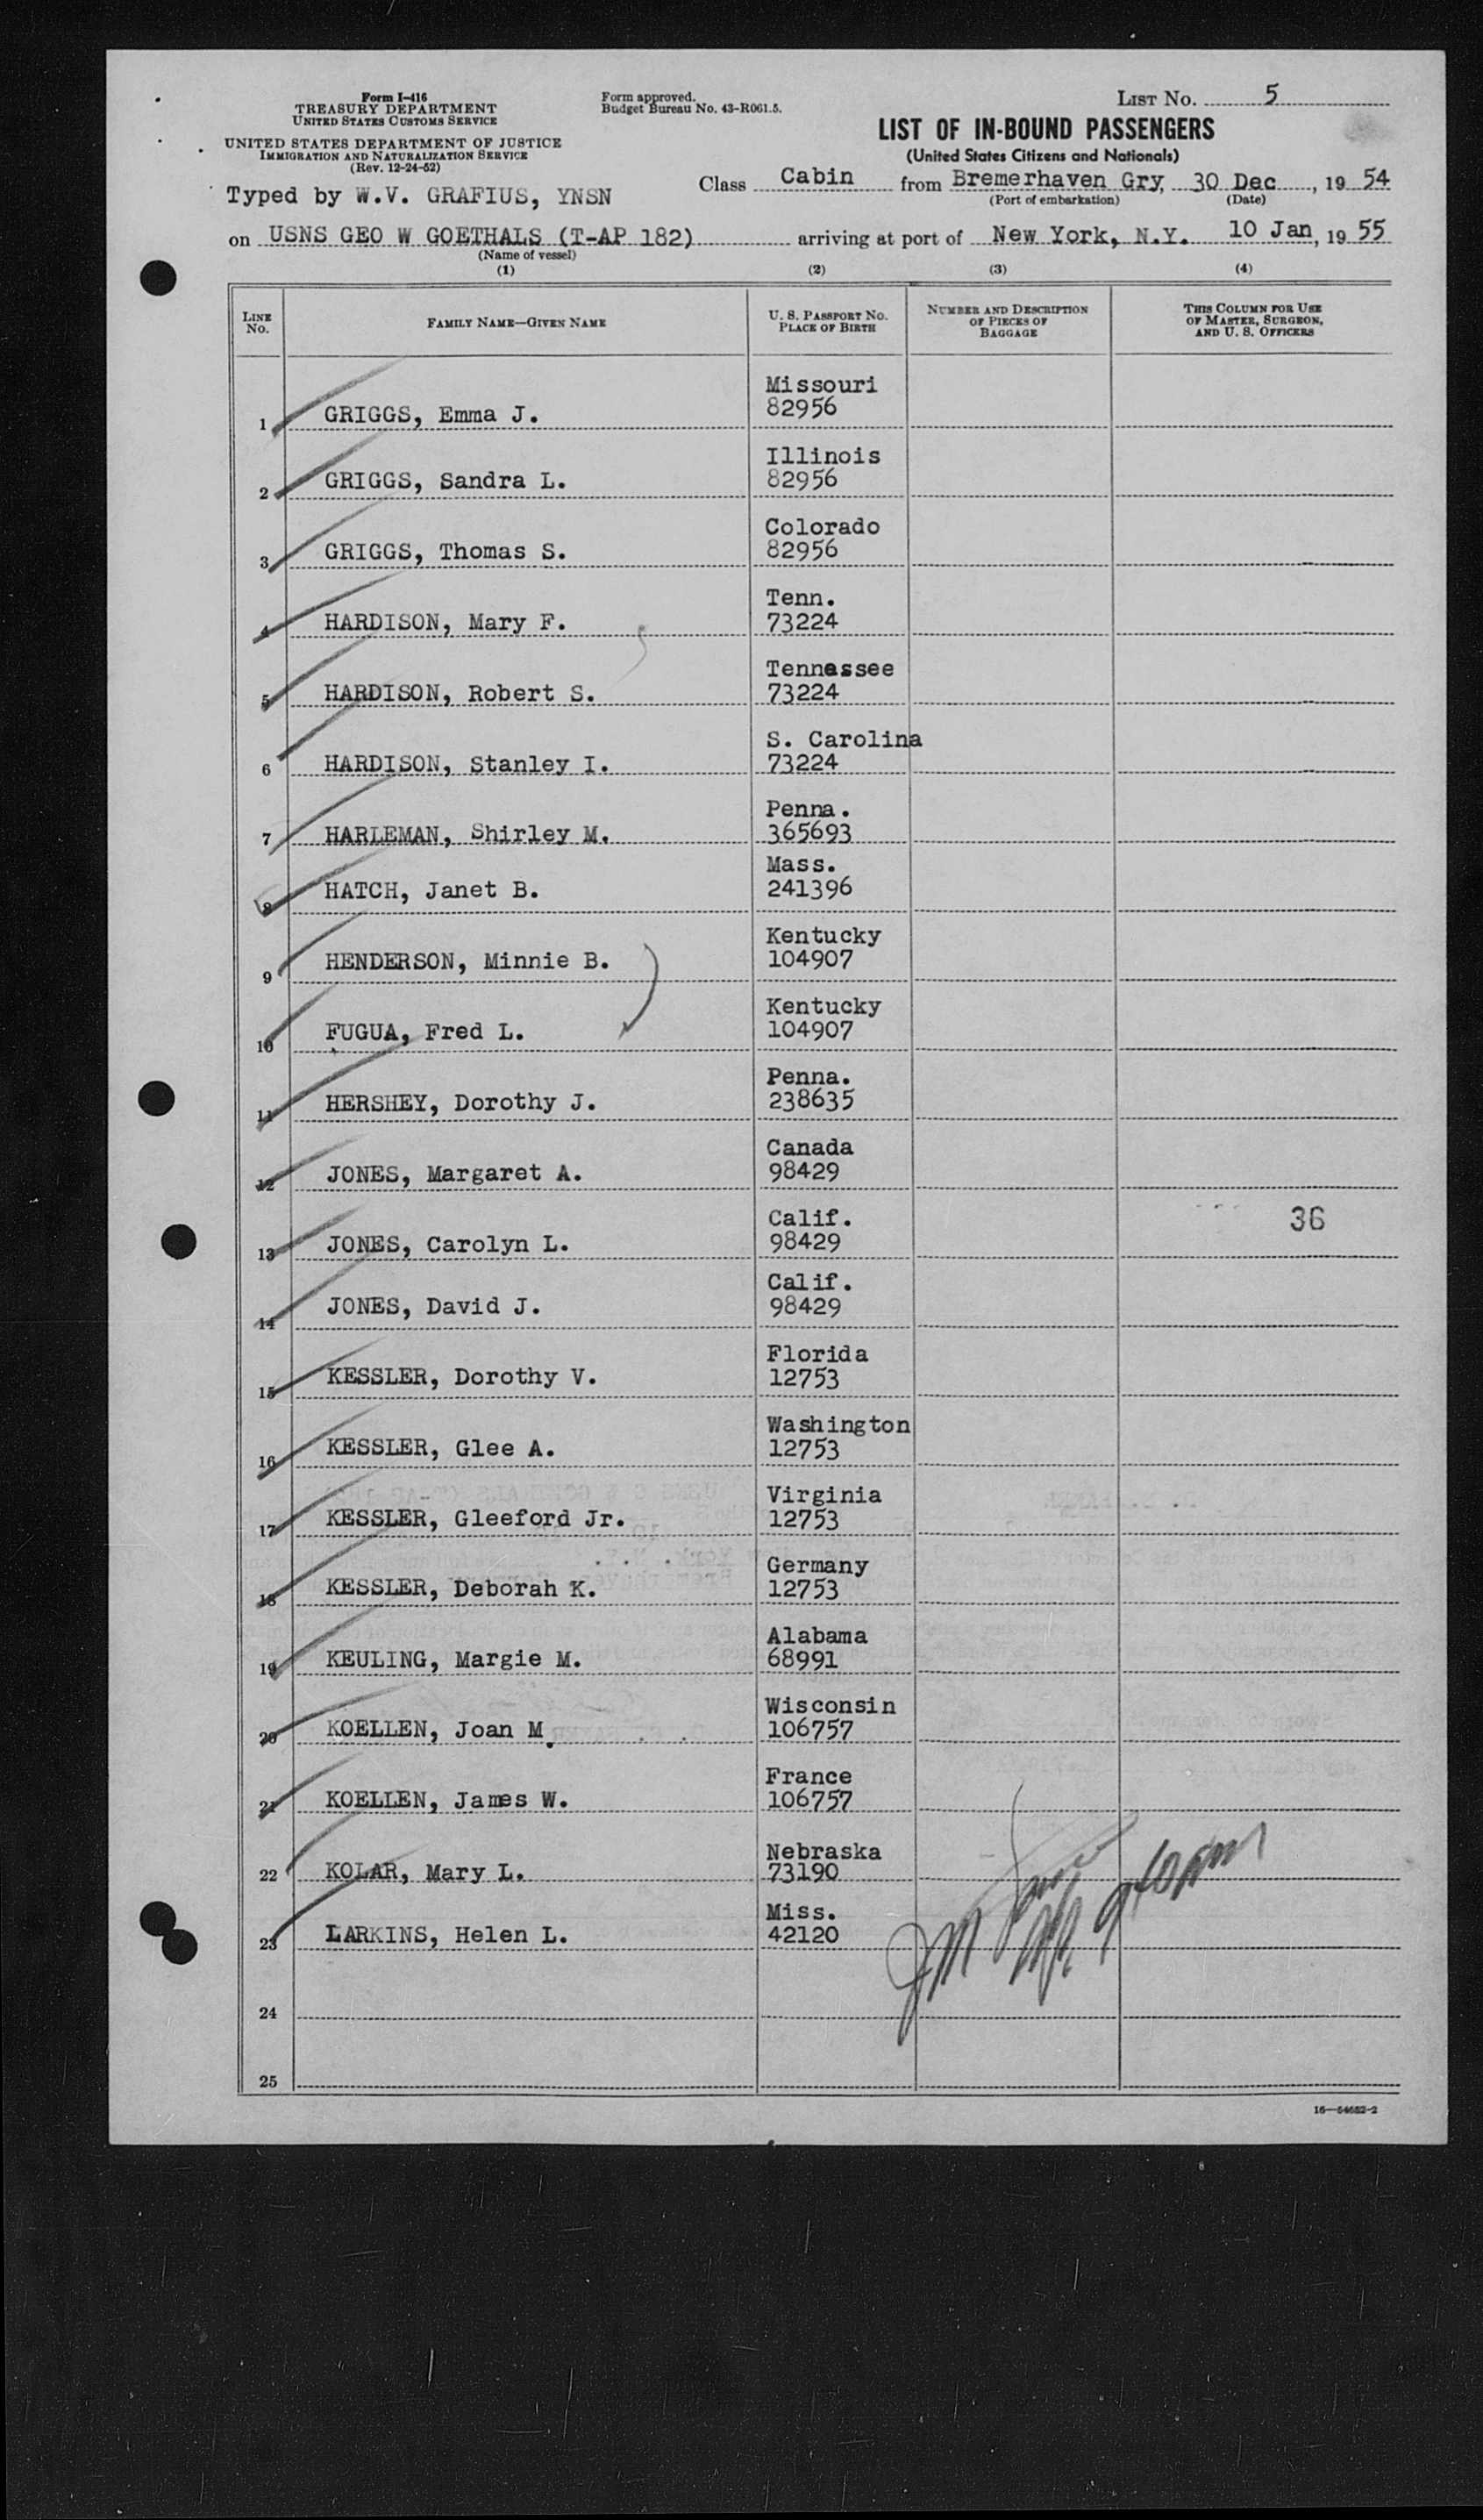 Form I-416
TREASURY DEPARTMENT
UNITED STATES CUSTOMS SERVICE
UNITED STATES DEPARTMENT OF JUSTICE
IMMIGRATION AND NATURALIZATION SERVICE
(Rev. 12-24-52)
Form approved.
Budget Bureau No. 43-R061.5.
LIST No. 5
LIST OF IN-BOUND PASSENGERS
(United States Citizens and Nationals)
Typed by W.V. GRAFIUS, YNSN
Class Cabin from Bremerhaven Gry, 30 Dec , 19 54
(Port of embarkation) (Date)
on USNS GEO W GOETHALS (T-AP 182) arriving at port of New York, N.Y. 10 Jan, 19 55
(Name of vessel)
(1) (2) (3) (4)
LINE No. FAMILY NAME—GIVEN NAME U. S. PASSPORT No. PLACE OF BIRTH NUMBER AND DESCRIPTION OF PIECES OF BAGGAGE THIS COLUMN FOR USE OF MASTER, SURGEON, AND U. S. OFFICERS
Missouri
1 GRIGGS, Emma J. 82956
Illinois
2 GRIGGS, Sandra L. 82956
Colorado
3 GRIGGS, Thomas S. 82956
Tenn.
4 HARDISON, Mary F. 73224
Tennessee
5 HARDISON, Robert S. 73224
S. Carolina
6 HARDISON, Stanley I. 73224
Penna.
7 HARLEMAN, Shirley M. 365693
Mass.
8 HATCH, Janet B. 241396
Kentucky
9 HENDERSON, Minnie B. 104907
Kentucky
10 FUGUA, Fred L. 104907
Penna.
11 HERSHEY, Dorothy J. 238635
Canada
12 JONES, Margaret A. 98429
Calif. 36
13 JONES, Carolyn L. 98429
Calif.
14 JONES, David J. 98429
Florida
15 KESSLER, Dorothy V. 12753
Washington
16 KESSLER, Glee A. 12753
Virginia
17 KESSLER, Gleeford Jr. 12753
Germany
18 KESSLER, Deborah K. 12753
Alabama
19 KEULING, Margie M. 68991
Wisconsin
20 KOELLEN, Joan M. 106757
France
21 KOELLEN, James W. 106757
Nebraska
22 KOLAR, Mary L. 73190
Miss.
23 LARKINS, Helen L. 42120
24
25
16—54682-2